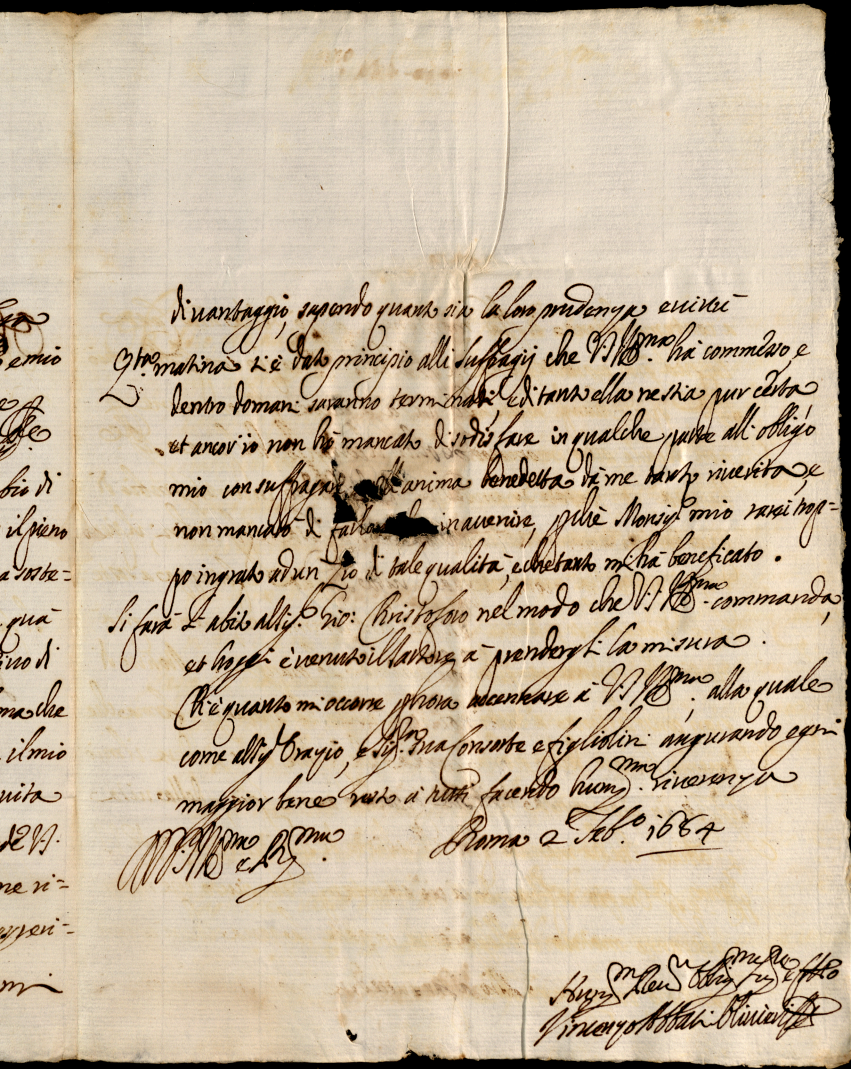 emio
bio di
il pieno
a soste=
quà
ino di
ma che
il mio
vita
de V.
ne ri=
di vantaggio, sapendo quanto sia la loro prudenza e virtù
Q.ta matina si è dato principio alli suffragij che V.S. Ill.ma hà commesso, e
dentro domani saranno terminati, e di tanto ella ne stia pur certa
et ancor io non hò mancato di sodisfare in qualche parte all obligo
mio con suffragare all'anima benedetta da me tanto riverita, e
non mancarò di farlo in avenire, p che Monsig.r mio sarei trop=
po ingrato ad un Zio di tale qualità, e che tanto mi hà beneficato.
Si farà l'abito al Sig.r Gio: Christoforo nel modo che V.S. Ill.ma commanda,
et hoggi è venuto il sartore à prendergli la misura.
Ch'è quanto mi occorre p hora accennare à V.S. Ill.ma alla quale
come al Sig.r Orazio, e Sig.ra sua Consorte e figliolini augurando ogni
maggior bene resto à tutti facendo hum.ma riverenza
D V.S. Ill.ma e R.ma
Roma 2 Feb.o 1664
Hum.mo Dev.mo Oblig.mo Ser.re e
Vincenzo Abbati Olivieri